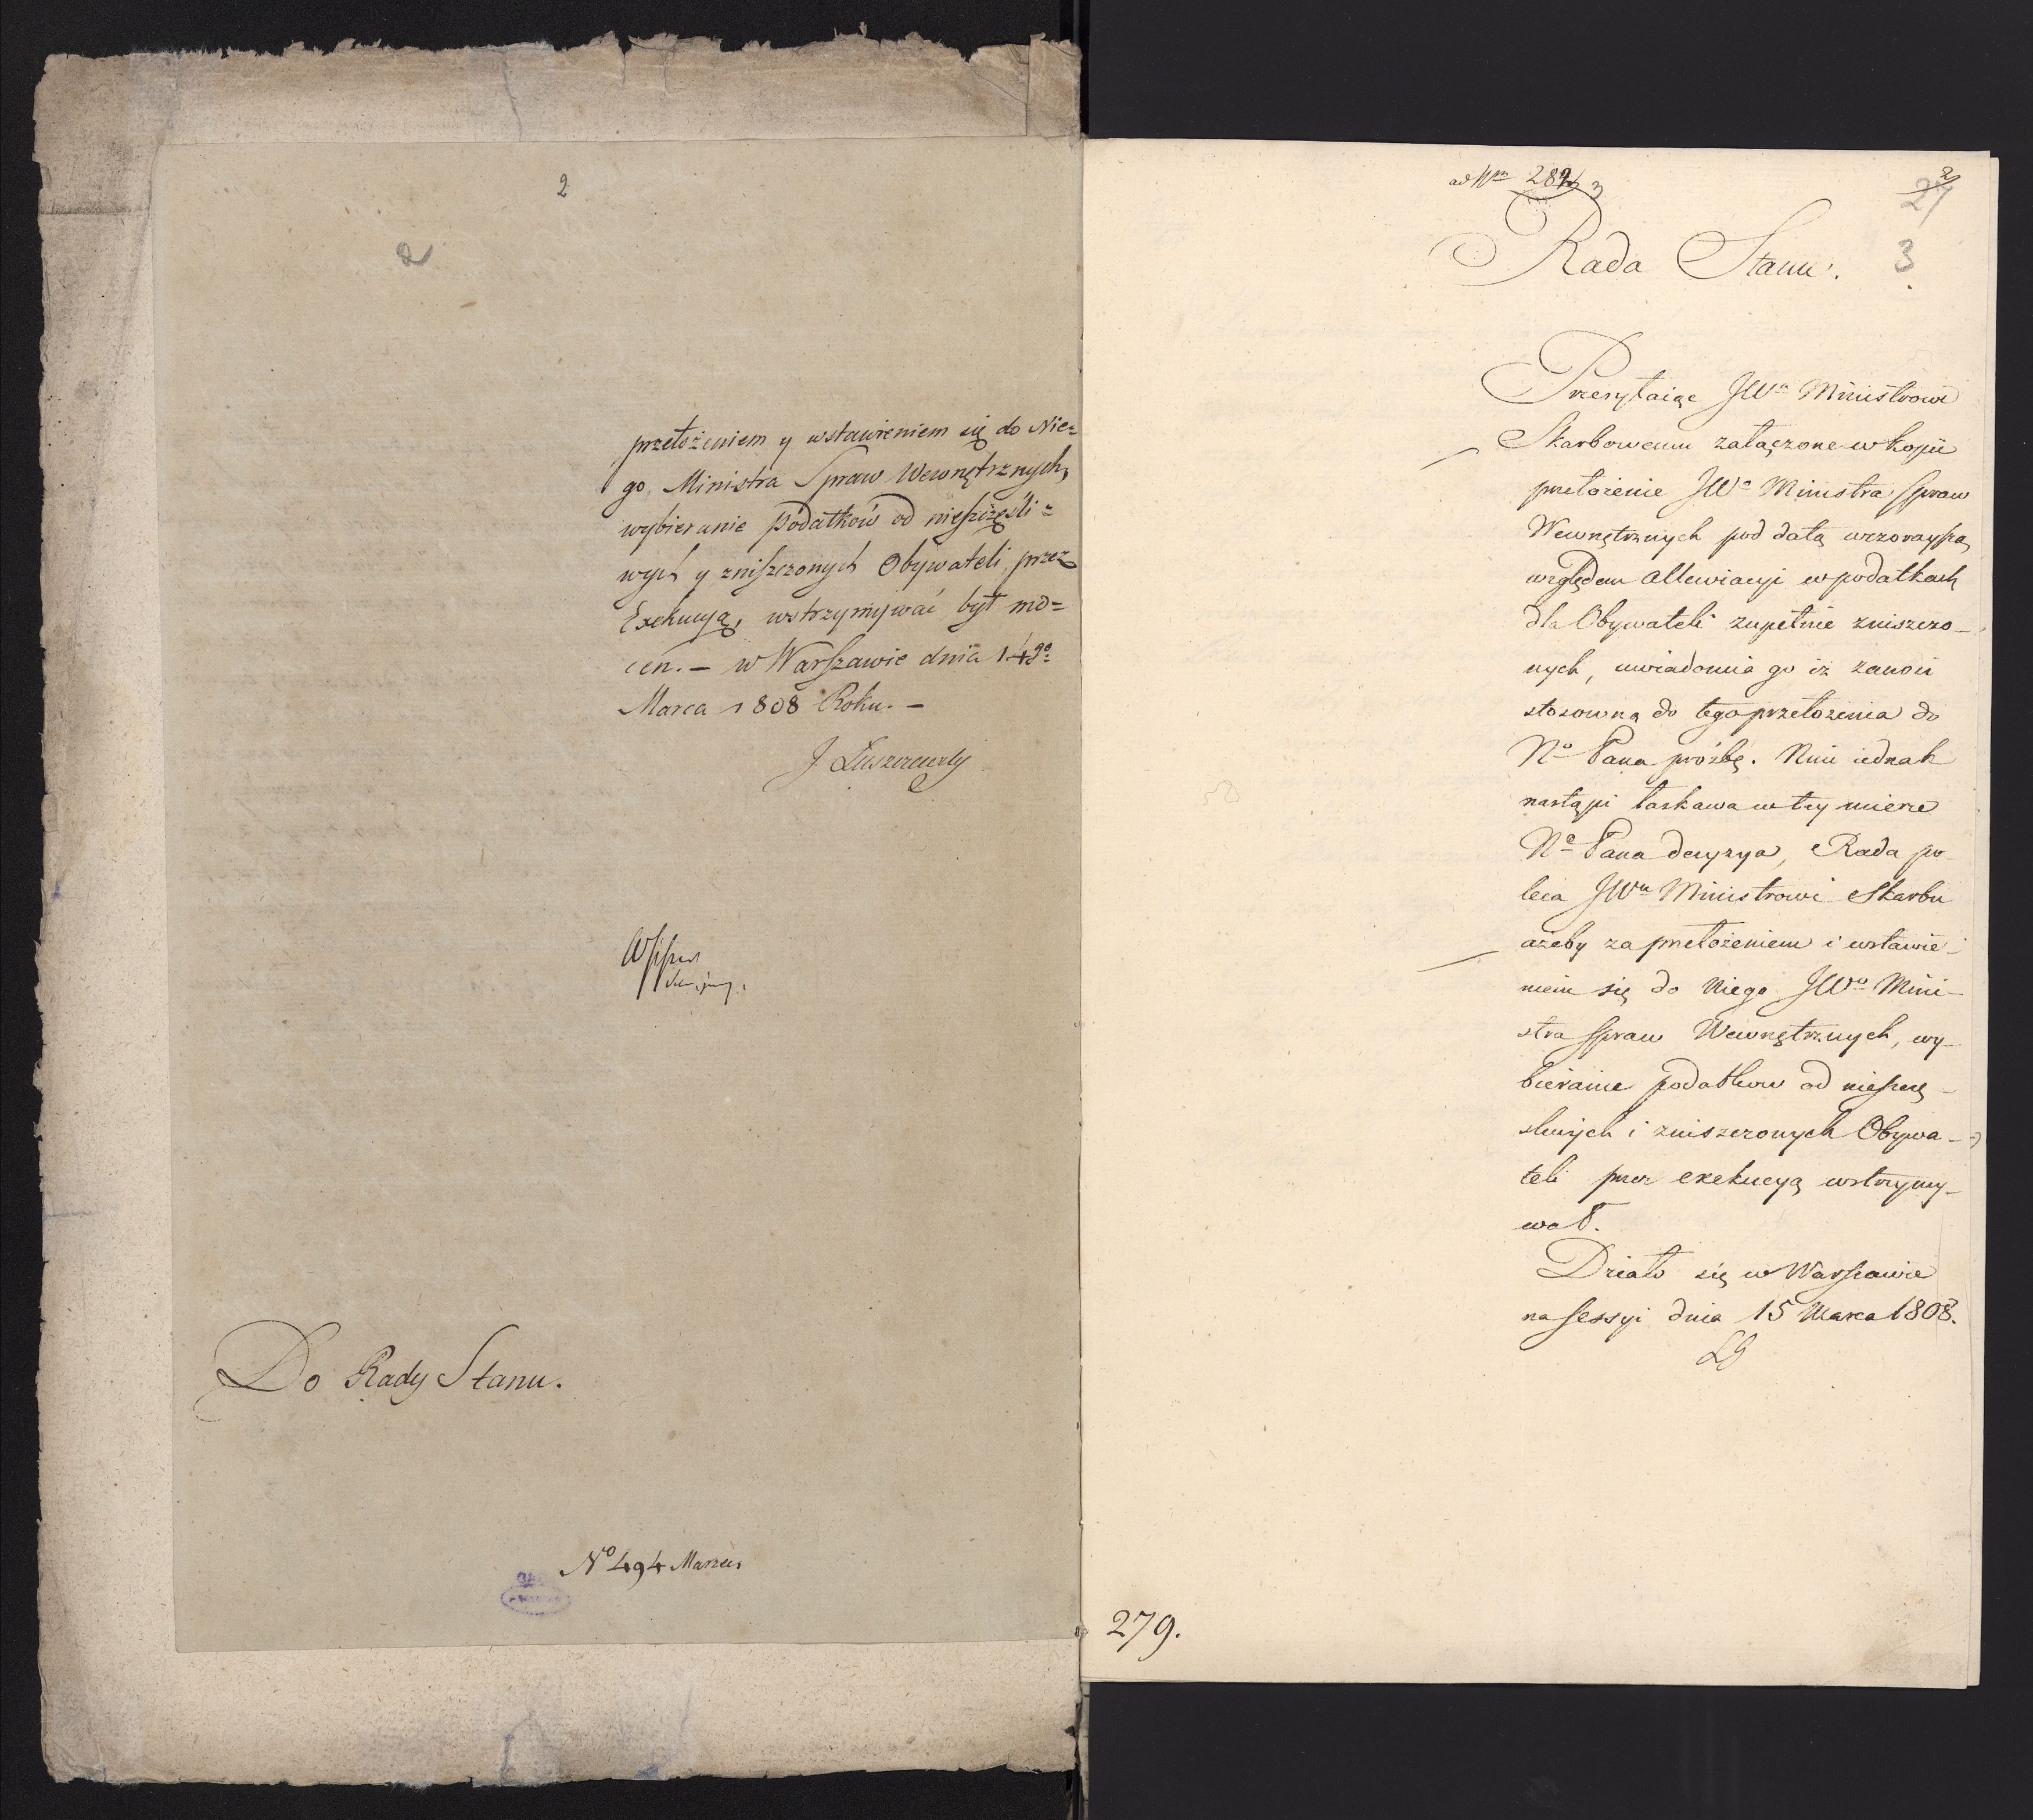 2
2
przełożeniem y wstawieniem się do Nie=
go, Ministra Spraw Wewnętrznych,
wybieranie Podatków od nieszczęśli=
wych y zniszczonych Obywateli, przez
Exekucyą, wstrzymywać był mo=
cen. — w Warszawie dnia 14go
Marca 1808 Roku. —
J Łuszczewsky
Do Rady Stanu.
No 494 Marzec
ad Nm 289
3
2
27
3
Rada Stanu.
Przesyłaiąc JWu Ministrowi
Skarbowemu załączone w kopii
przełożenie JWo Ministra Spraw
Wewnętrznych pod datą wczorayszą
względem allewiacyi w podatkach
dla Obywateli zupełnie zniszczo-
nych, uwiadomia go iż zanosi
stosowną do tego przełożenia do
No Pana prozbę. Nim iednak
nastąpi łaskawa w tey mierze
No Pana decyzya, Rada po-
leca JWu Ministrowi Skarbu
ażeby za przełożeniem i wstawie-
niem się do Niego JWo Mini-
stra Spraw Wewnętrznych, wy-
bieranie podatkow od nieszczę-
sliwych i zniszczonych Obywa-
teli przez exekucyą wstrzymy-
wał.
Działo się w Warszawie
na Sessyi dnia 15 Marca 1808.
279.